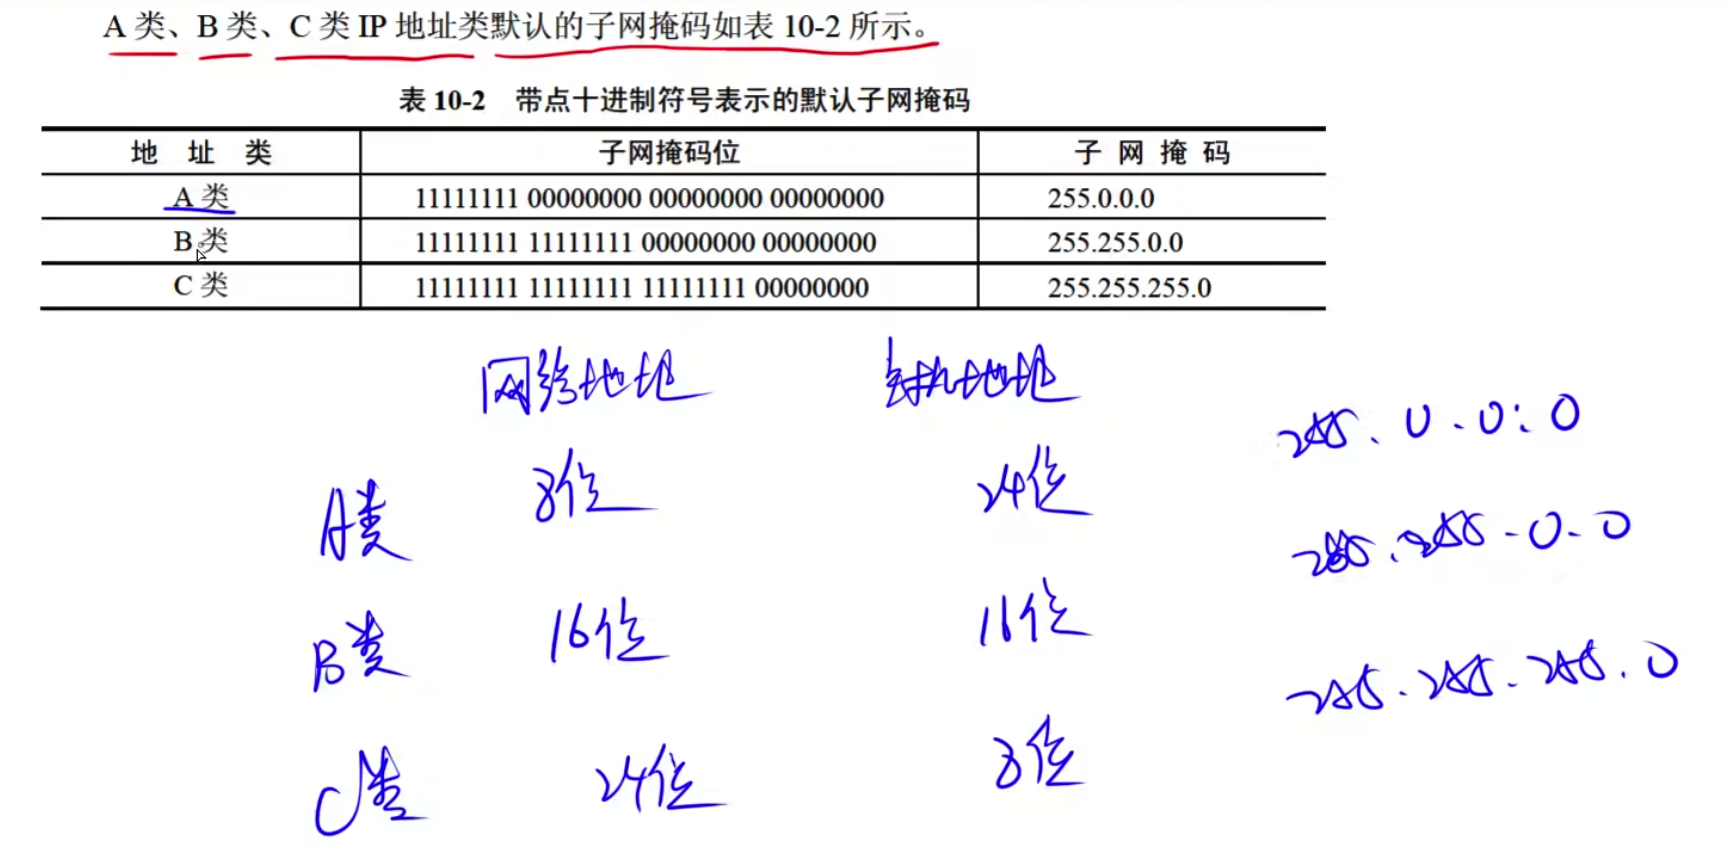 A 类、B 类、C 类 IP 地址类默认的子网掩码如表 10-2 所示。
表 10-2 带点十进制符号表示的默认子网掩码
地 址 类 子网掩码位 子 网 掩 码
A 类 11111111 00000000 00000000 00000000 255.0.0.0
B 类 11111111 11111111 00000000 00000000 255.255.0.0
C 类 11111111 11111111 11111111 00000000 255.255.255.0
网络地址 主机地址
255.0.0.0
A类 8位 24位
255.255.0.0
B类 16位 16位
255.255.255.0
C类 24位 8位